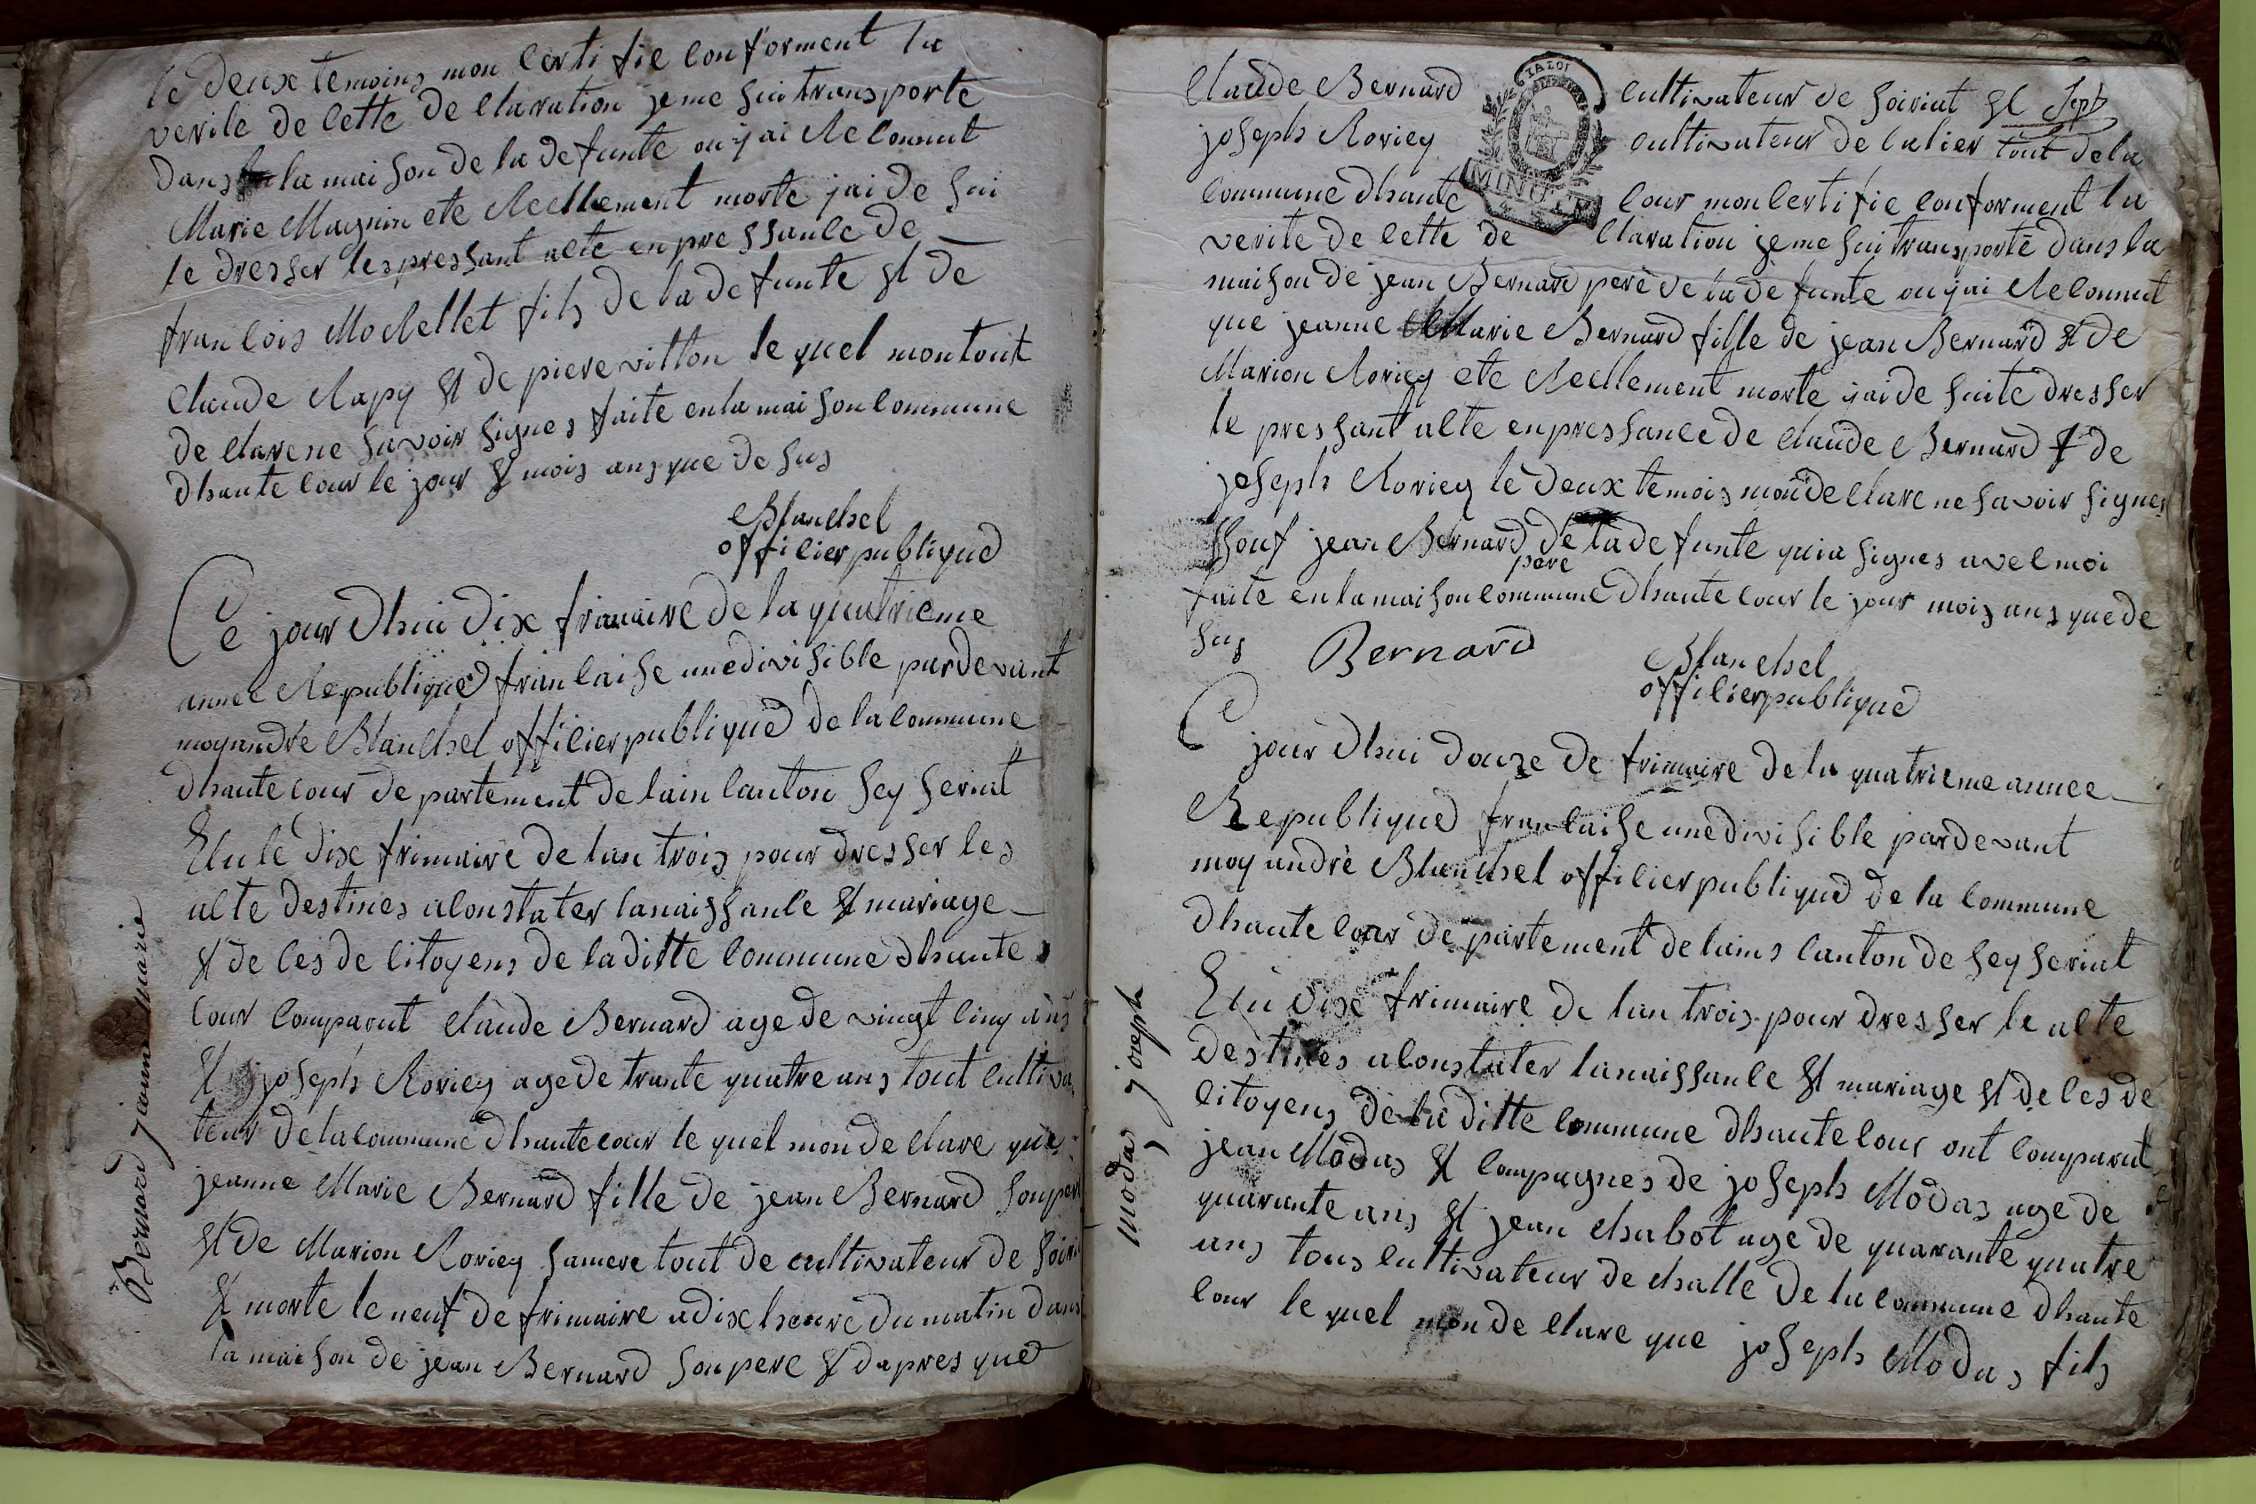 le deux temoins mon certi fie conforment la
verite de cette de claration je me sui transporte
dans la mai son de la de funte ou jai Reconnut
Marie Magnin ete Reellement morte jai de sui
te dresser les pressant acte en pre ssance de
francois Morellet fils de la de funte et de
claude Rapy et de piere vitton le quel mon tout
de clarene savoir signes faite en la mai son commune
dhaute cour le jour et mois ans que de sus
Blanchet
officier publique
Ce jour dhui dix frimaire de la quatrieme
annee Republique francaise une divisible par devant
moy andre Blanchet officier publique de la commune
dhaute cour de partement de lain canton sey seriat
Elu le dix frimaire de lan trois pour dresser les
acte destines a constater la naissance et mariage
et de ces de citoyens de la ditte commune dhaute
cour comparut claude Bernard age de vingt cinq ans
et joseph Roriey age de trante quatre ans tout cultiva
teur de la commune dhaute cour le quel mon de clare que
jeanne Marie Bernard fille de jean Bernard son pere
et de Marion Roriey sa mere tout de cultivateur de
et morte le neuf de frimaire a dix heure du matin dans
la mai son de jean Bernard son pere et dapres que
Bernard jeanne marie
claude Bernard cultivateur de soiriat et
joseph Roriey cultivateur de tout de la
commune dhaute cour mon certi fie conforment la
verite de cette de claration je me sui transporte dans la
maison de jean Bernard pere de la de funte ou jai Reconnut
que jeanne Marie Bernard fille de jean Bernard et de
Marion Roriey ete Reellement morte jai de suite dresser
le pressant acte en pressance de claude Bernard et de
joseph Roriey le deux temois mon de clare ne savoir signer
souf jean Bernard de la de funte qui a signes avec moi
pere
faite en la mai son commune dhaute cour le jour mois ans que de
sus Bernard Blanchet
officier publique
Ce jour dhui douze de frimaire de la quatrieme annee
Republique francaise une divisible par devant
moy andre Blanchet officier publique de la commune
dhaute cour de partement de lains canton de sey seriat
Elu dix frimaire de lan trois pour dresser le acte
destines a constater la naissance et mariage et de ces de
citoyens de la ditte commune dhaute cour ont comparut
jean Modas et compagnes de joseph Modas age de
quarante ans et jean chabot age de quarante quatre
ans tous cultivateur de challe de la commune dhaute
cour le quel mon de clare que joseph Modas fils
modas joseph
MINUT